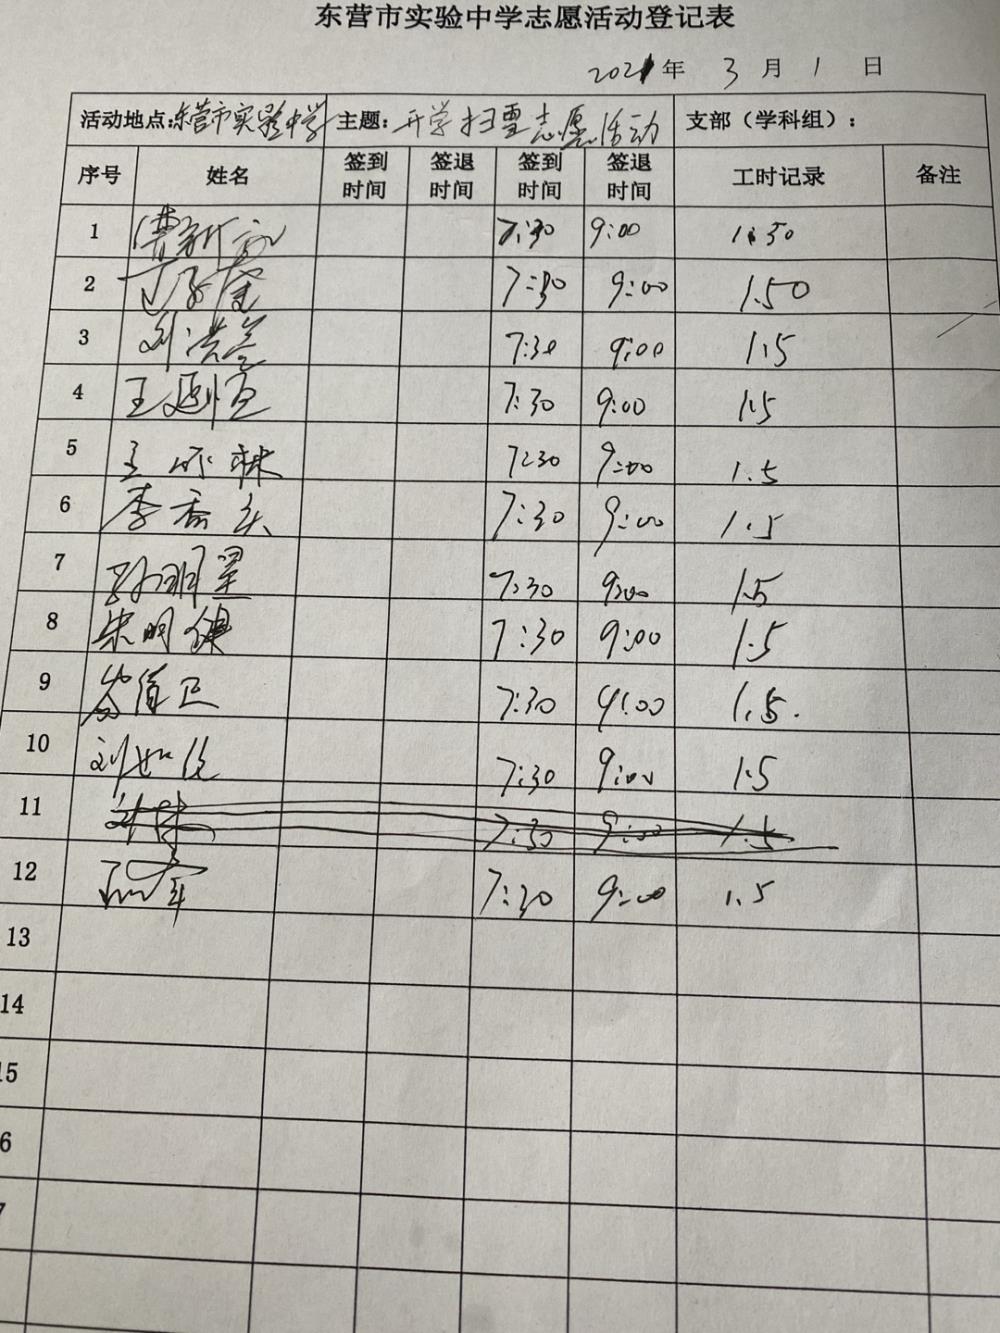 东营市实验中学志愿活动登记表
2021年 3月 1日
活动地点:东营市实验中学 主题: 开学扫雪志愿活动 支部（学科组）:
序号 姓名 签到时间 签退时间 签到时间 签退时间 工时记录 备注
1 7:30 9:00 1.50
2 7:30 9:00 1.50
3 7:30 9:00 1.5
4 王 7:30 9:00 1.5
5 王 林 7:30 9:00 1.5
6 李 7:30 9:00 1.5
7 孙明星 7:30 9:00 1.5
8 朱明健 7:30 9:00 1.5
9 7:30 9:00 1.5.
10 刘 7:30 9:00 1.5
11 7:30 9:00 1.5
12 7:30 9:00 1.5
13
14
15
6
7